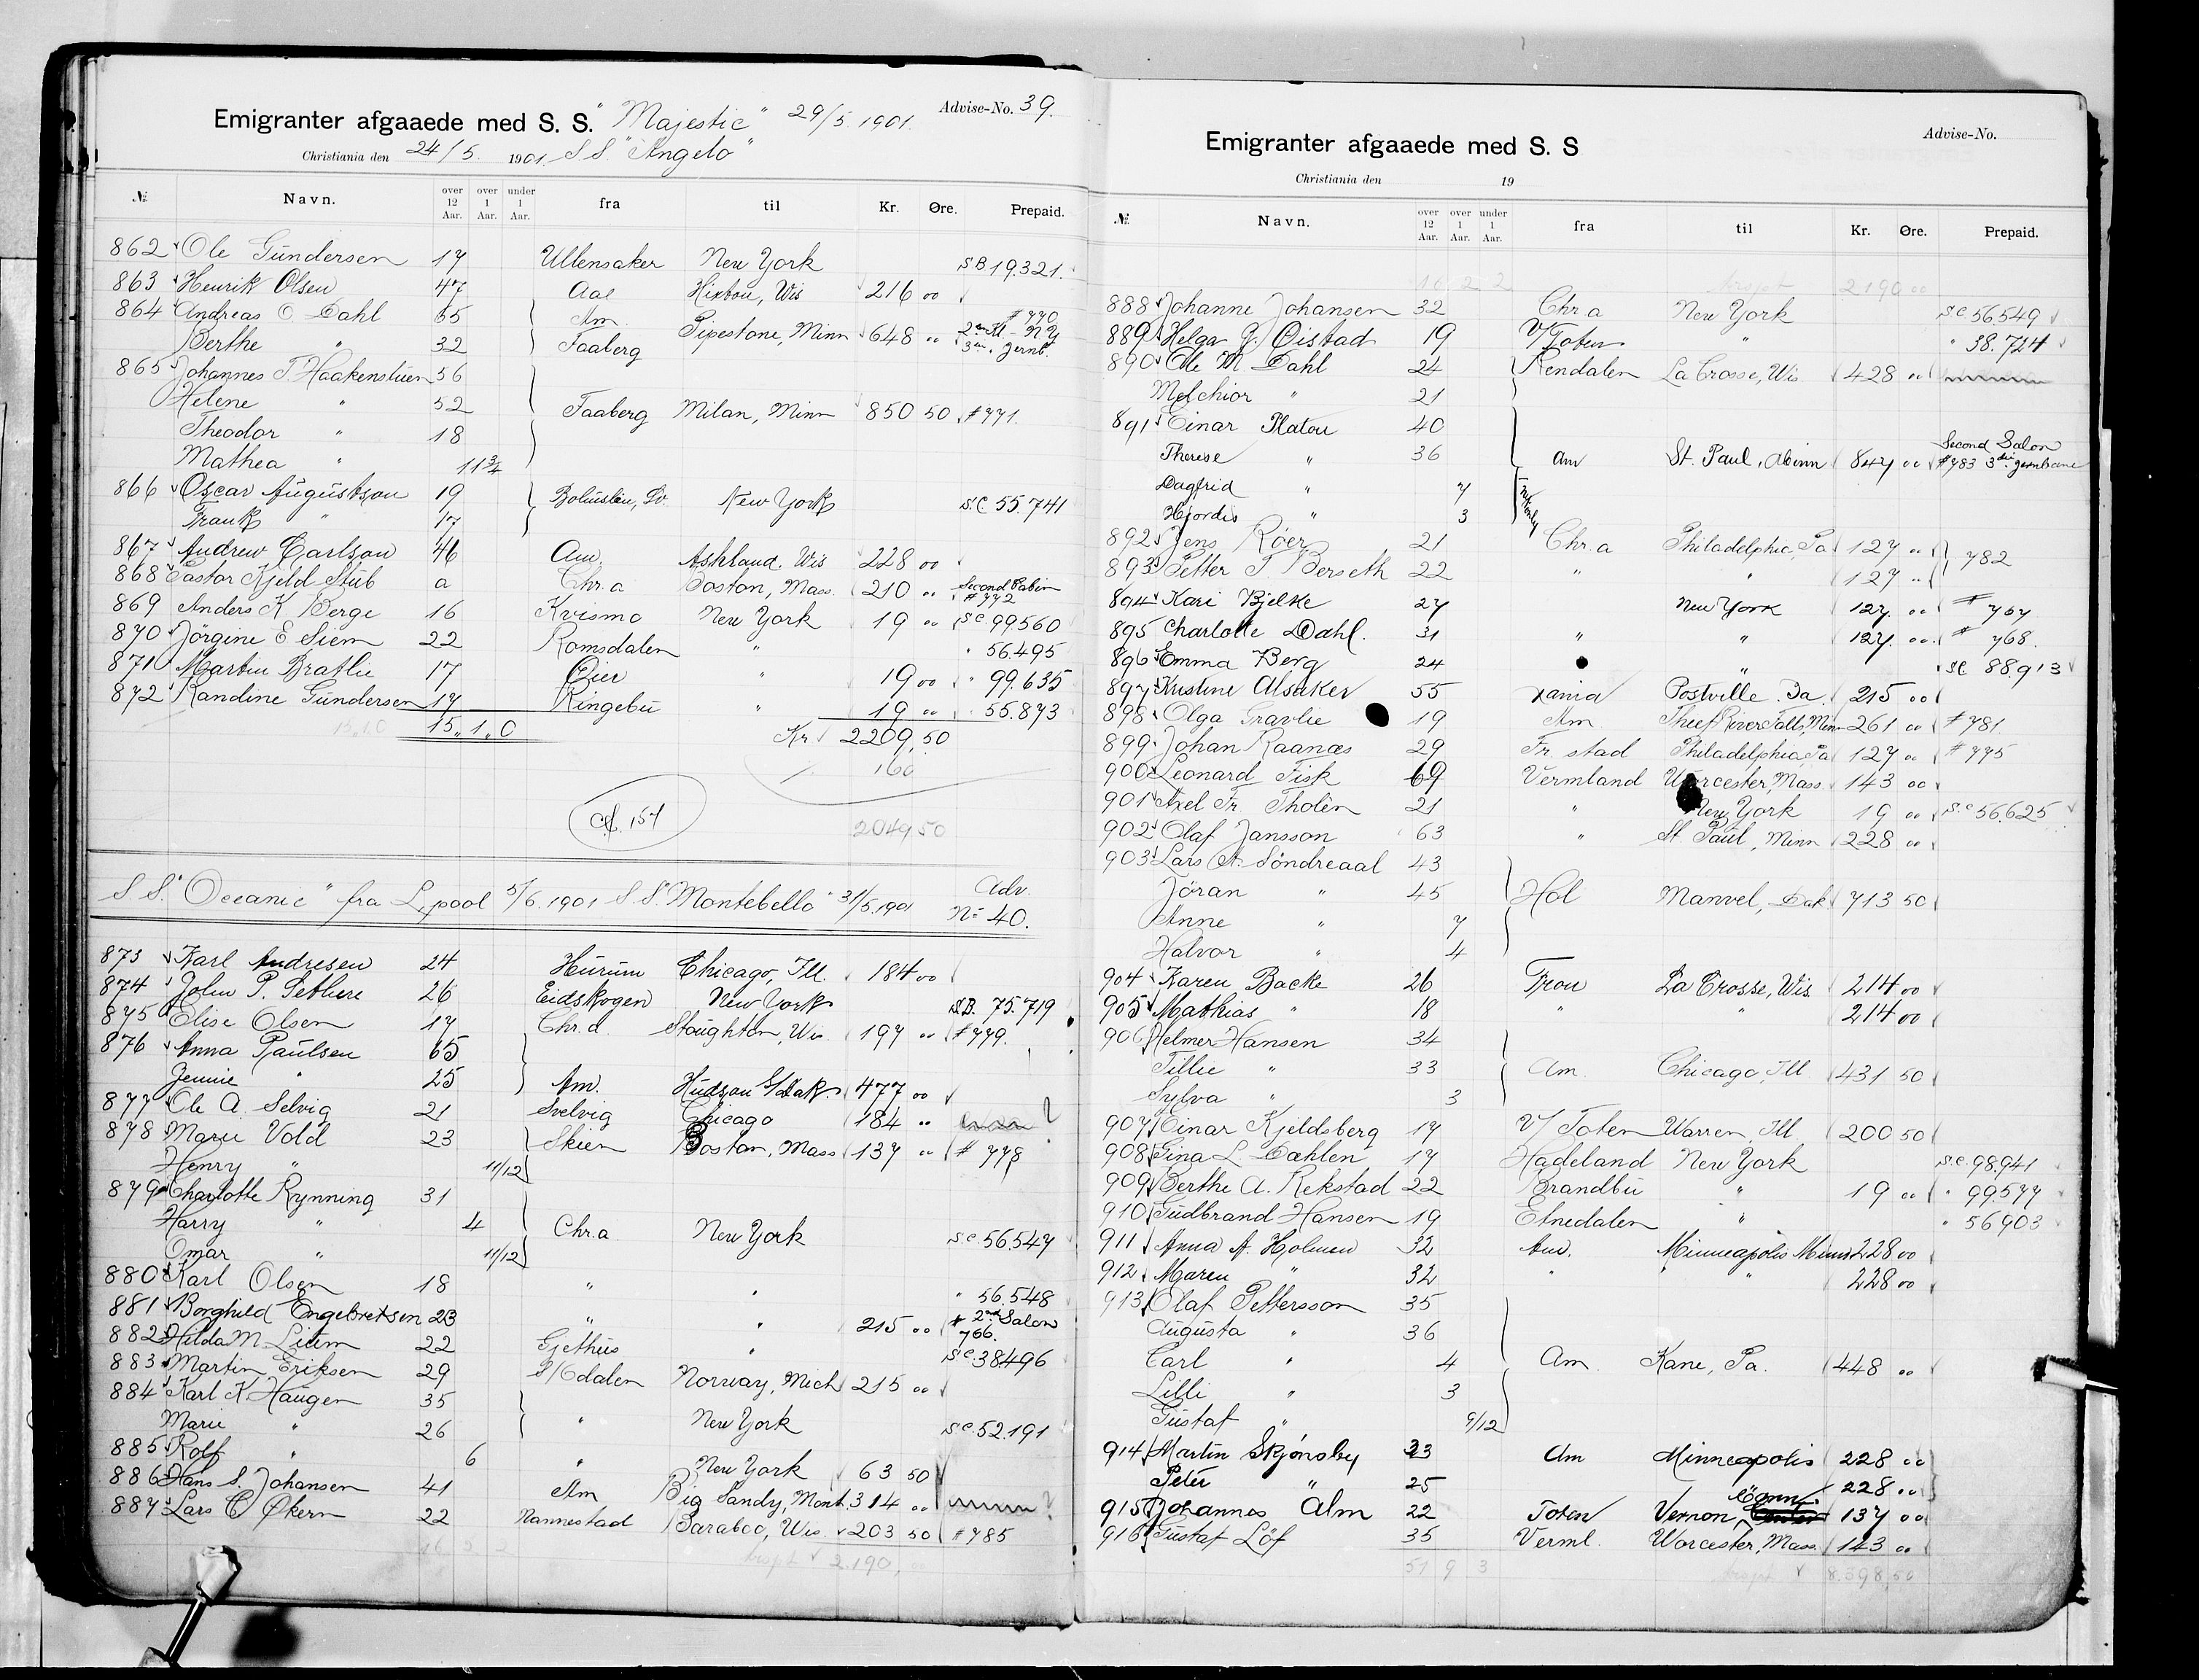 Emigranter afgaaede med S. S. "Majestic" 29/5 1901. Advise-No. 39.
Christiania den 24/5. 1901. S.S. "Angelo"
№ Navn. over 12 Aar. over 1 Aar. under 1 Aar. fra til Kr. Øre. Prepaid.
862 Ole Gundersen 17 Ullensaker New York SB 19321.
863 Henrik Olsen 47 Aal Wis 216 00
864 Andreas O Dahl 65 Am. Pipestone, Minn 648 " # 770 2den Kl - N Y
Berthe " 32 Faaberg 3die Jernb.
865 Johannes T. Haakenstuen 56
Helene " 52 Faaberg Milan, Minn 850 50 # 771.
Theodor " 18
Mathea " 11 3/4
866 Oscar Augustson 19 New York S.C 55.741
Frank " 17
867 Andrew Carlson 46 Am. Ashland. Wis 228 00
868 Pastor Kjeld Stub a Chr.a Boston, Mass. 210 " Second Cabin # 772
869 Anders K Berge 16 Kvismo New York 19 " SC 99560
870 Jörgine E Siem 22 Romsdalen " " 56.495
871 Martin Bratlie 17 Öier " 19 00 " 99.635
872 Randine Gundersen 17 Ringebu " 19 " " 55.873
15 " 1 " 0 Kr 2209.50
160
cf. 157
2049 50
S.S. "Oceanic" fra L.pool 5/6.1901 S.S. "Montebello" 31/5.1901 Adv. No 40.
873 Karl Andresen 24 Hurum Chicago, Ill. 184 00
874 John P. Sethere 26 Eidskogen New York S.B. 75.719
875 Elise Olsen 17 Chr.a Stoughton, Wis. 197 " # 779.
876 Anna Paulsen 65
Jennie " 25 Am. Hudson S/Dak. 477 00
877 Ole A. Selvig 21 Svelvig Chicago 184 " ?
878 Marie Vold 23 Skien Boston, Mass 137 " # 778
Henry " 11/12
879 Charlotte Rynning 31
Harry " 4 Chr.a New York S.C. 56.547
Omar " 11/12
880 Karl Olsen 18 " " " 56.548
881 Borghild Engebretsen 23 " " 215 " # 2nd Salon 766.
882 Hilda M. Liem 22 Gjethus " SC 38496
883 Martin Eriksen 29 S/Odalen Norway, Mich 215 "
884 Karl K. Haugen 35
Marie " 26 " New York SC 52.191
885 Rolf " 6 " New York 63 50
886 Hans S. Johansen 41 Am Big Sandy, Mont. 314 " ?
887 Lars C Økern 22 Nannestad Baraboo, Wis. 203 50 # 785
16 2 2 trspt 2.190, 00
Emigranter afgaaede med S. S Advise-No.
Christiania den 19
№ Navn. over 12 Aar. over 1 Aar. under 1 Aar. fra til Kr. Øre. Prepaid.
16 2 2 trspt 2190 00
888 Johanne Johansen 32 Chr.a New York SC 56.549
889 Helga G. Øistad 19 V/Toten " " 38.724
890 Ole M Dahl 24 Rendalen La Crosse, Wis. 428 "
Melchior " 21
891 Einar Platou 40
Therese " 36 Am St. Paul, Minn 847 " Second Salon # 783 3die jernbane
Dagfrid " 7
Hjordis " 3
892 Jens Röer 21 Chr.a Philadelphia, Pa 127 " 782
893 Petter T. Berseth 22 " " 127 "
894 Kari Bjelke 27 New York 127. 00 # 767
895 Charlotte Dahl. 31 " " 127. 00. # 768.
896 Emma Berg 24 " SC 88913
897 Kristine Alsaker 55 Xania Postville Ia. 215 00
898 Olga Gravlie 19 Am. Thief River Falls, Minn 261 00 # 781
899 Johan Raanæs 29 Fr. stad Philadelphia, Pa 127 " # 775
900 Leonard Fisk 69 Vermland Worcester, Mass. 143 00
901 Axel Fr. Tholén 21 " New York 19 " S.C 56.625
902 Olaf Jansson 63 " St. Paul, Minn 228 "
903 Lars A. Söndreaal 43
Jöran " 45 Hol Manvel, Dak 713 50
Anne " 7
Halvor " 4
904 Karen Backe 26 Tron La Crosse, Wis. 214 00
905 Mathias " 18 " " 214 00
906 Helmer Hansen 34
Tillie " 33 Am. Chicago, Ill 431 50
Sylva " 3
907 Einar Kjeldsberg 17 V/Toten Warren, Ill 200 50
908 Gina L. Dæhlen 17 Hadeland New York S.C. 98941
909 Berthe A. Rekstad 22 Brandbu " 19 " " 99577
910 Gudbrand Hansen 19 Etnedalen " " 56903
911 Anna A. Holmen 32 Am. Minneapolis Minn 228 00
912 Maren " 32 " " 228 00
913 Olaf Pettersson 35
Augusta " 36
Carl " 4 Am Kane, Pa. 448 "
Lilli " 3
Gustaf " 9/12
914 Martin Skjönsby 23 Am Minneapolis 228 00
Peter " 25 228 00
915 Johannes Alm 22 Toten Vernon, Conn. 137 00
916 Gustaf Löf 35 Verml. Worcester, Mass. 143 "
51 9 3 trspt 8.398,50